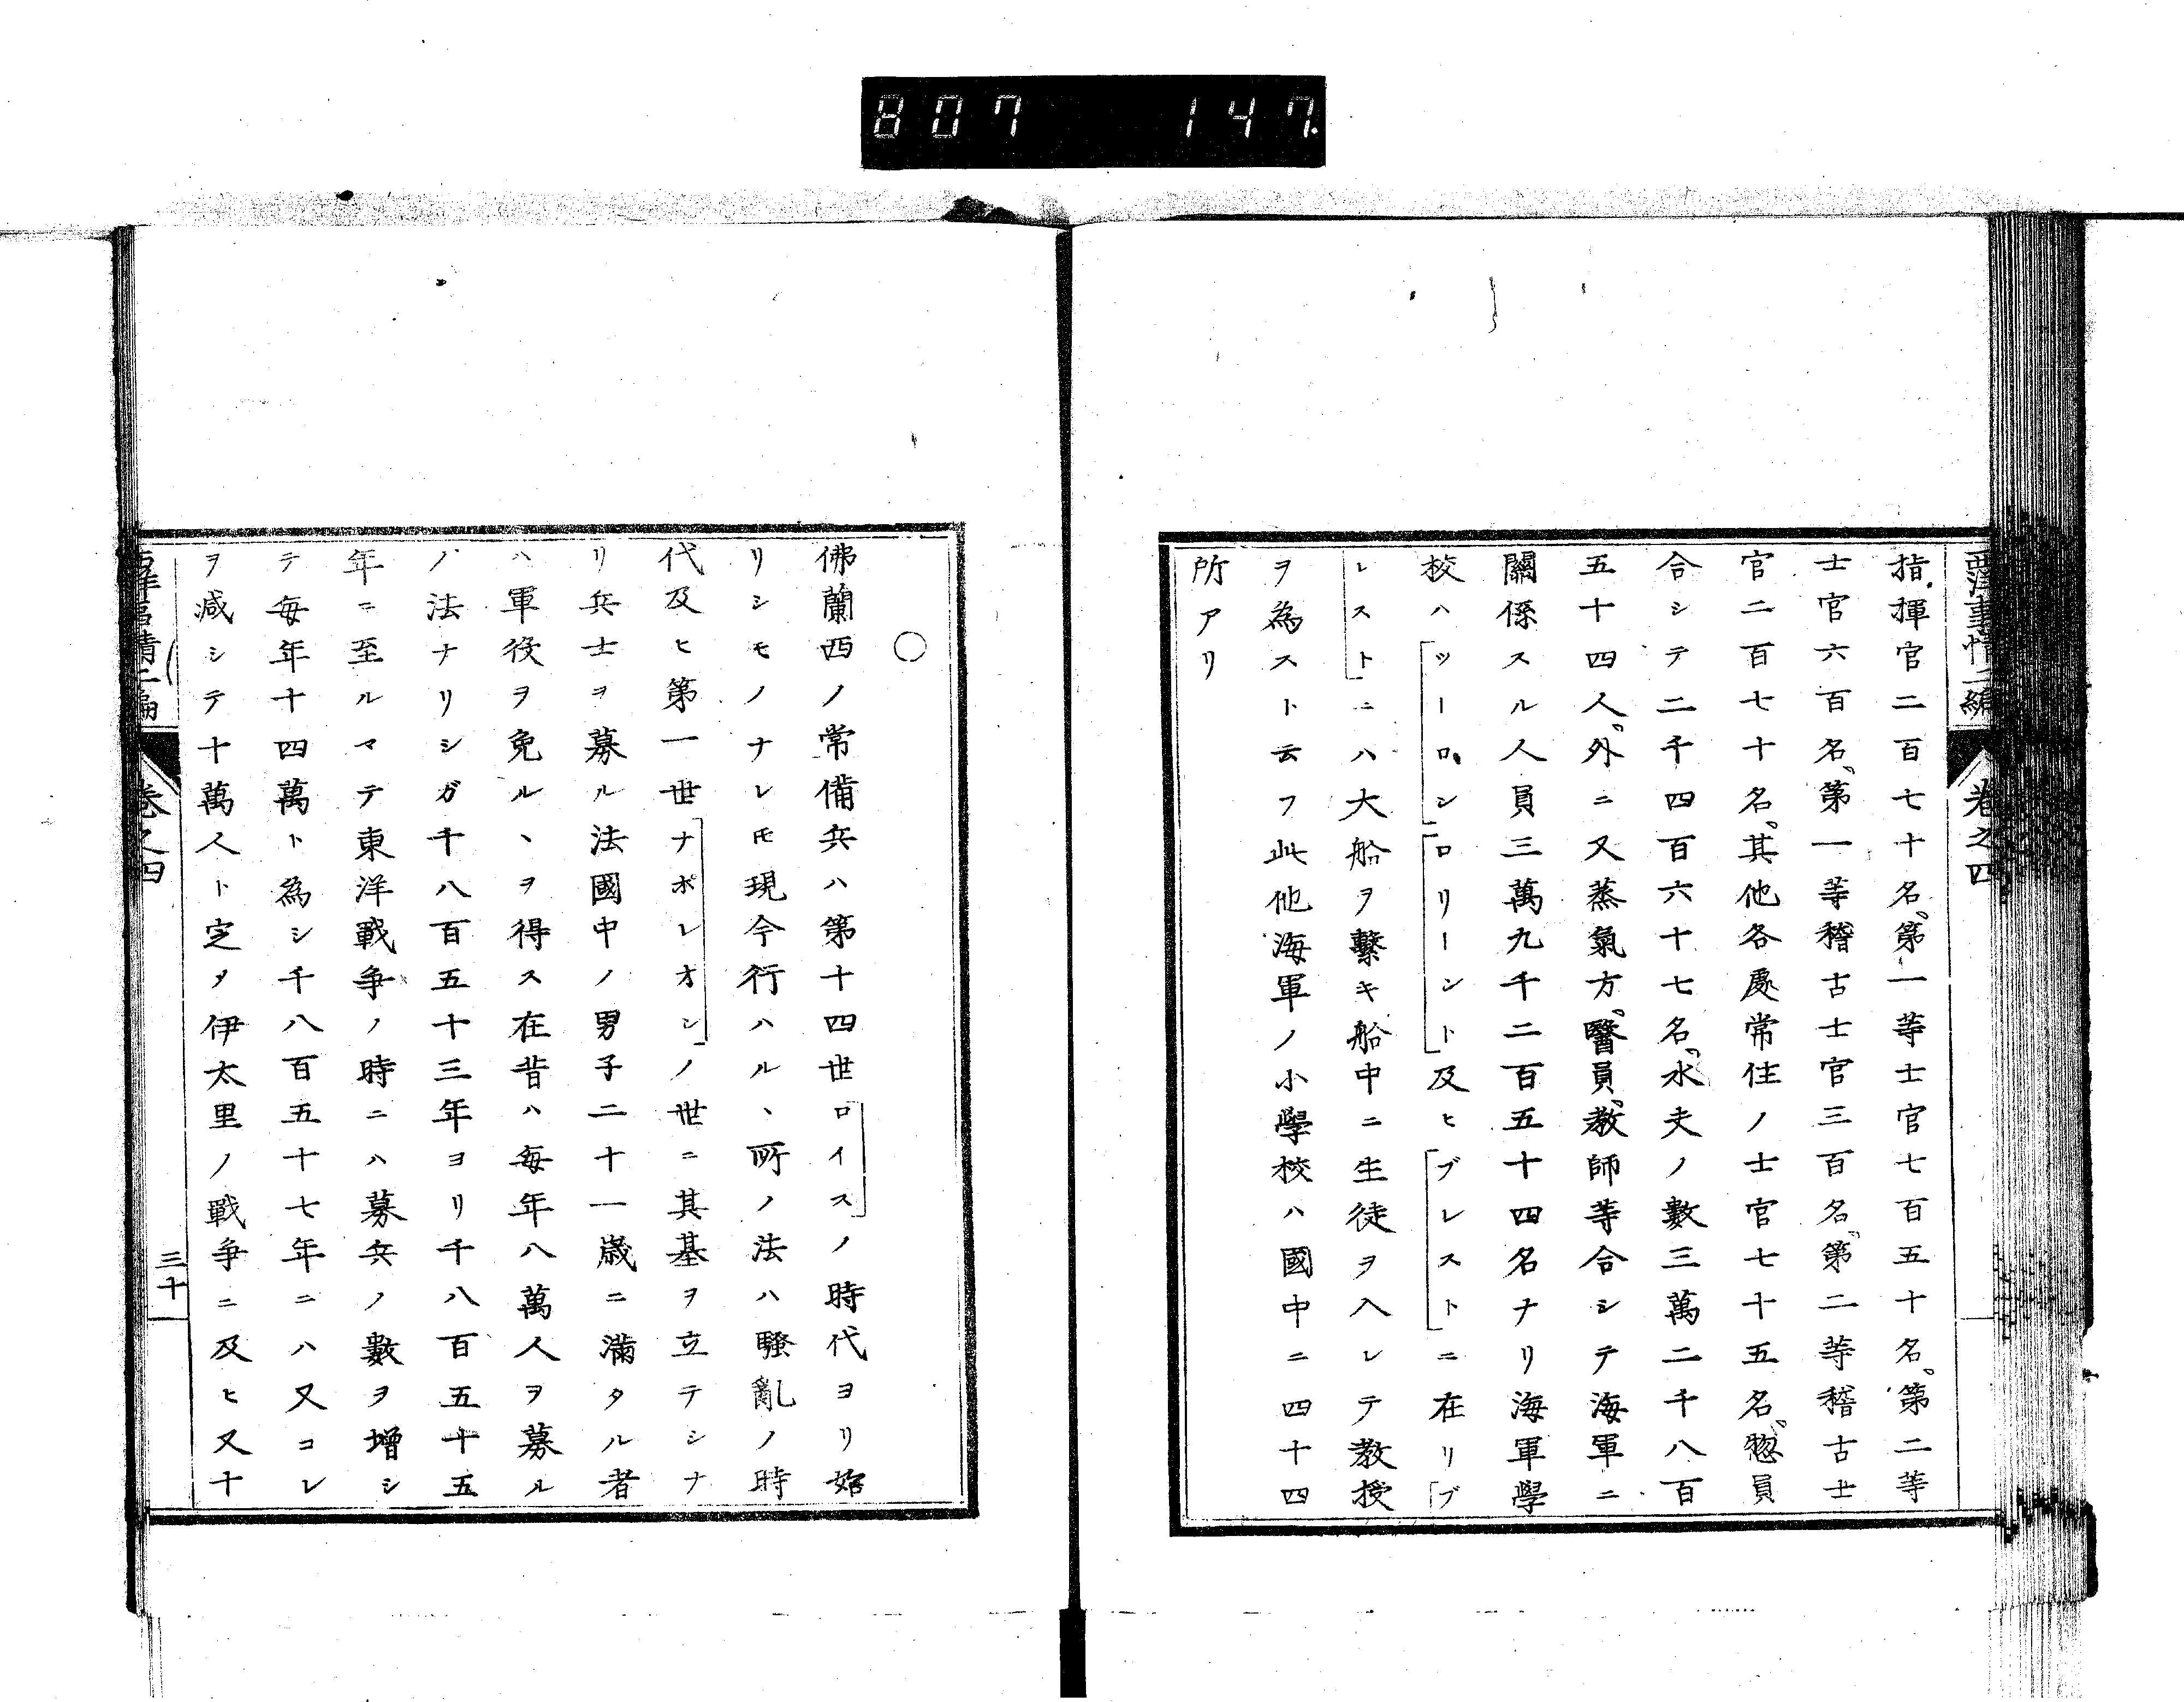 807 147.
西洋事情二編 卷之四
指揮官二百七十名、第一等士官七百五十名、第二等
士官六百名、第一等稽古士官三百名、第二等稽古士
官二百七十名、其他各處常住ノ士官七十五名、惣員
合シテ二千四百六十七名、水夫ノ數三萬二千八百
五十四人、外ニ又蒸氣方、醫員、教師等合シテ海軍ニ
關係スル人員三萬九千二百五十四名ナリ海軍學
校ハ「ツーロン」「ロリーント」及ヒ「ブレスト」ニ在リ「ブ
レスト」ニハ大船ヲ繫キ船中ニ生徒ヲ入レテ教授
ヲ為スト云フ此他海軍ノ小學校ハ國中ニ四十四
所アリ
○
佛蘭西ノ常備兵ハ第十四世ロイスノ時代ヨリ始
リシモノナレ𪜈現今行ハル丶所ノ法ハ騷亂ノ時
代及ヒ第一世ナポレオンノ世ニ其基ヲ立テシナ
リ兵士ヲ募ル法國中ノ男子二十一歳ニ滿タル者
ハ軍役ヲ免ル丶ヲ得ス在昔ハ每年八萬人ヲ募ル
ノ法ナリシガ千八百五十三年ヨリ千八百五十五
年ニ至ルマテ東洋戰爭ノ時ニハ募兵ノ數ヲ增シ
テ每年十四萬ト為シ千八百五十七年ニハ又コレ
ヲ減シテ十萬人ト定タ伊太里ノ戰爭ニ及ヒ又十
西洋事情二編 卷之四 三十